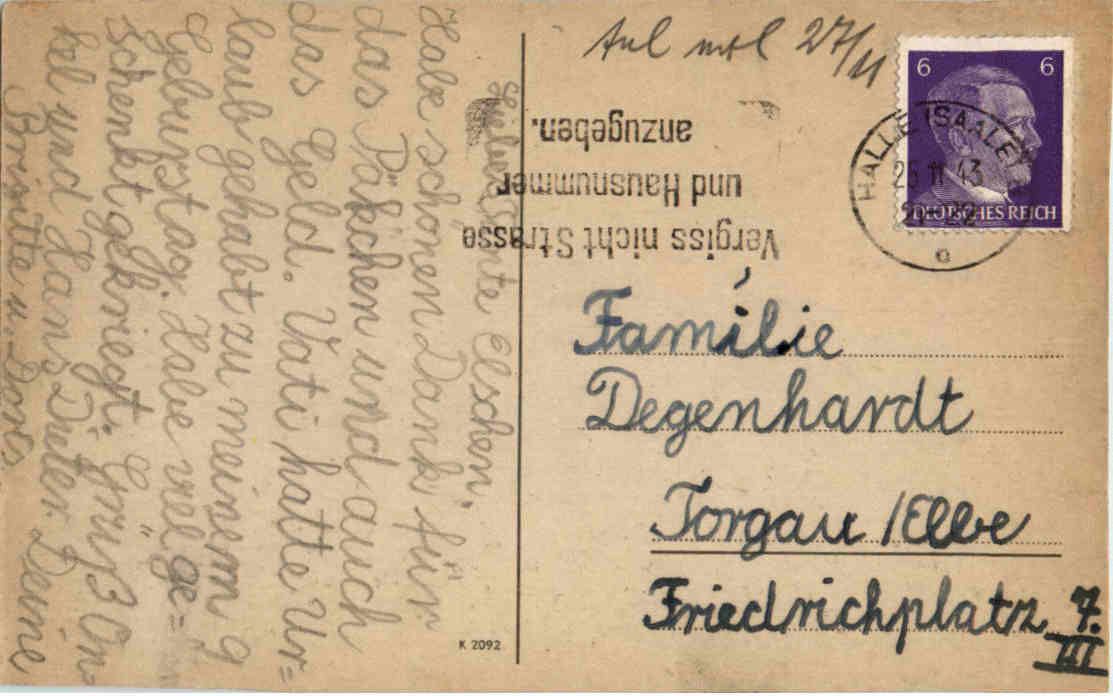 Liebe Tante Elschen,
Habe schönen Dank für
das Päkchen und auch
das Geld. Vati hatte Ur=
laub gehabt zu meinem 9
Geburstag. Habe viel ge=
schenkt gekriegt. Grüß On=
kel und Hans Dieter Deine
Brigitte u. Doris
27/11
6 6
DEUTSCHES REICH
HALLE (SAALE)
11.43
a
Vergiss nicht Strasse
und Hausnummer
anzugeben.
Familie
Degenhardt
Torgau/Elbe
Friedrichplatz 7.
III
K 2092